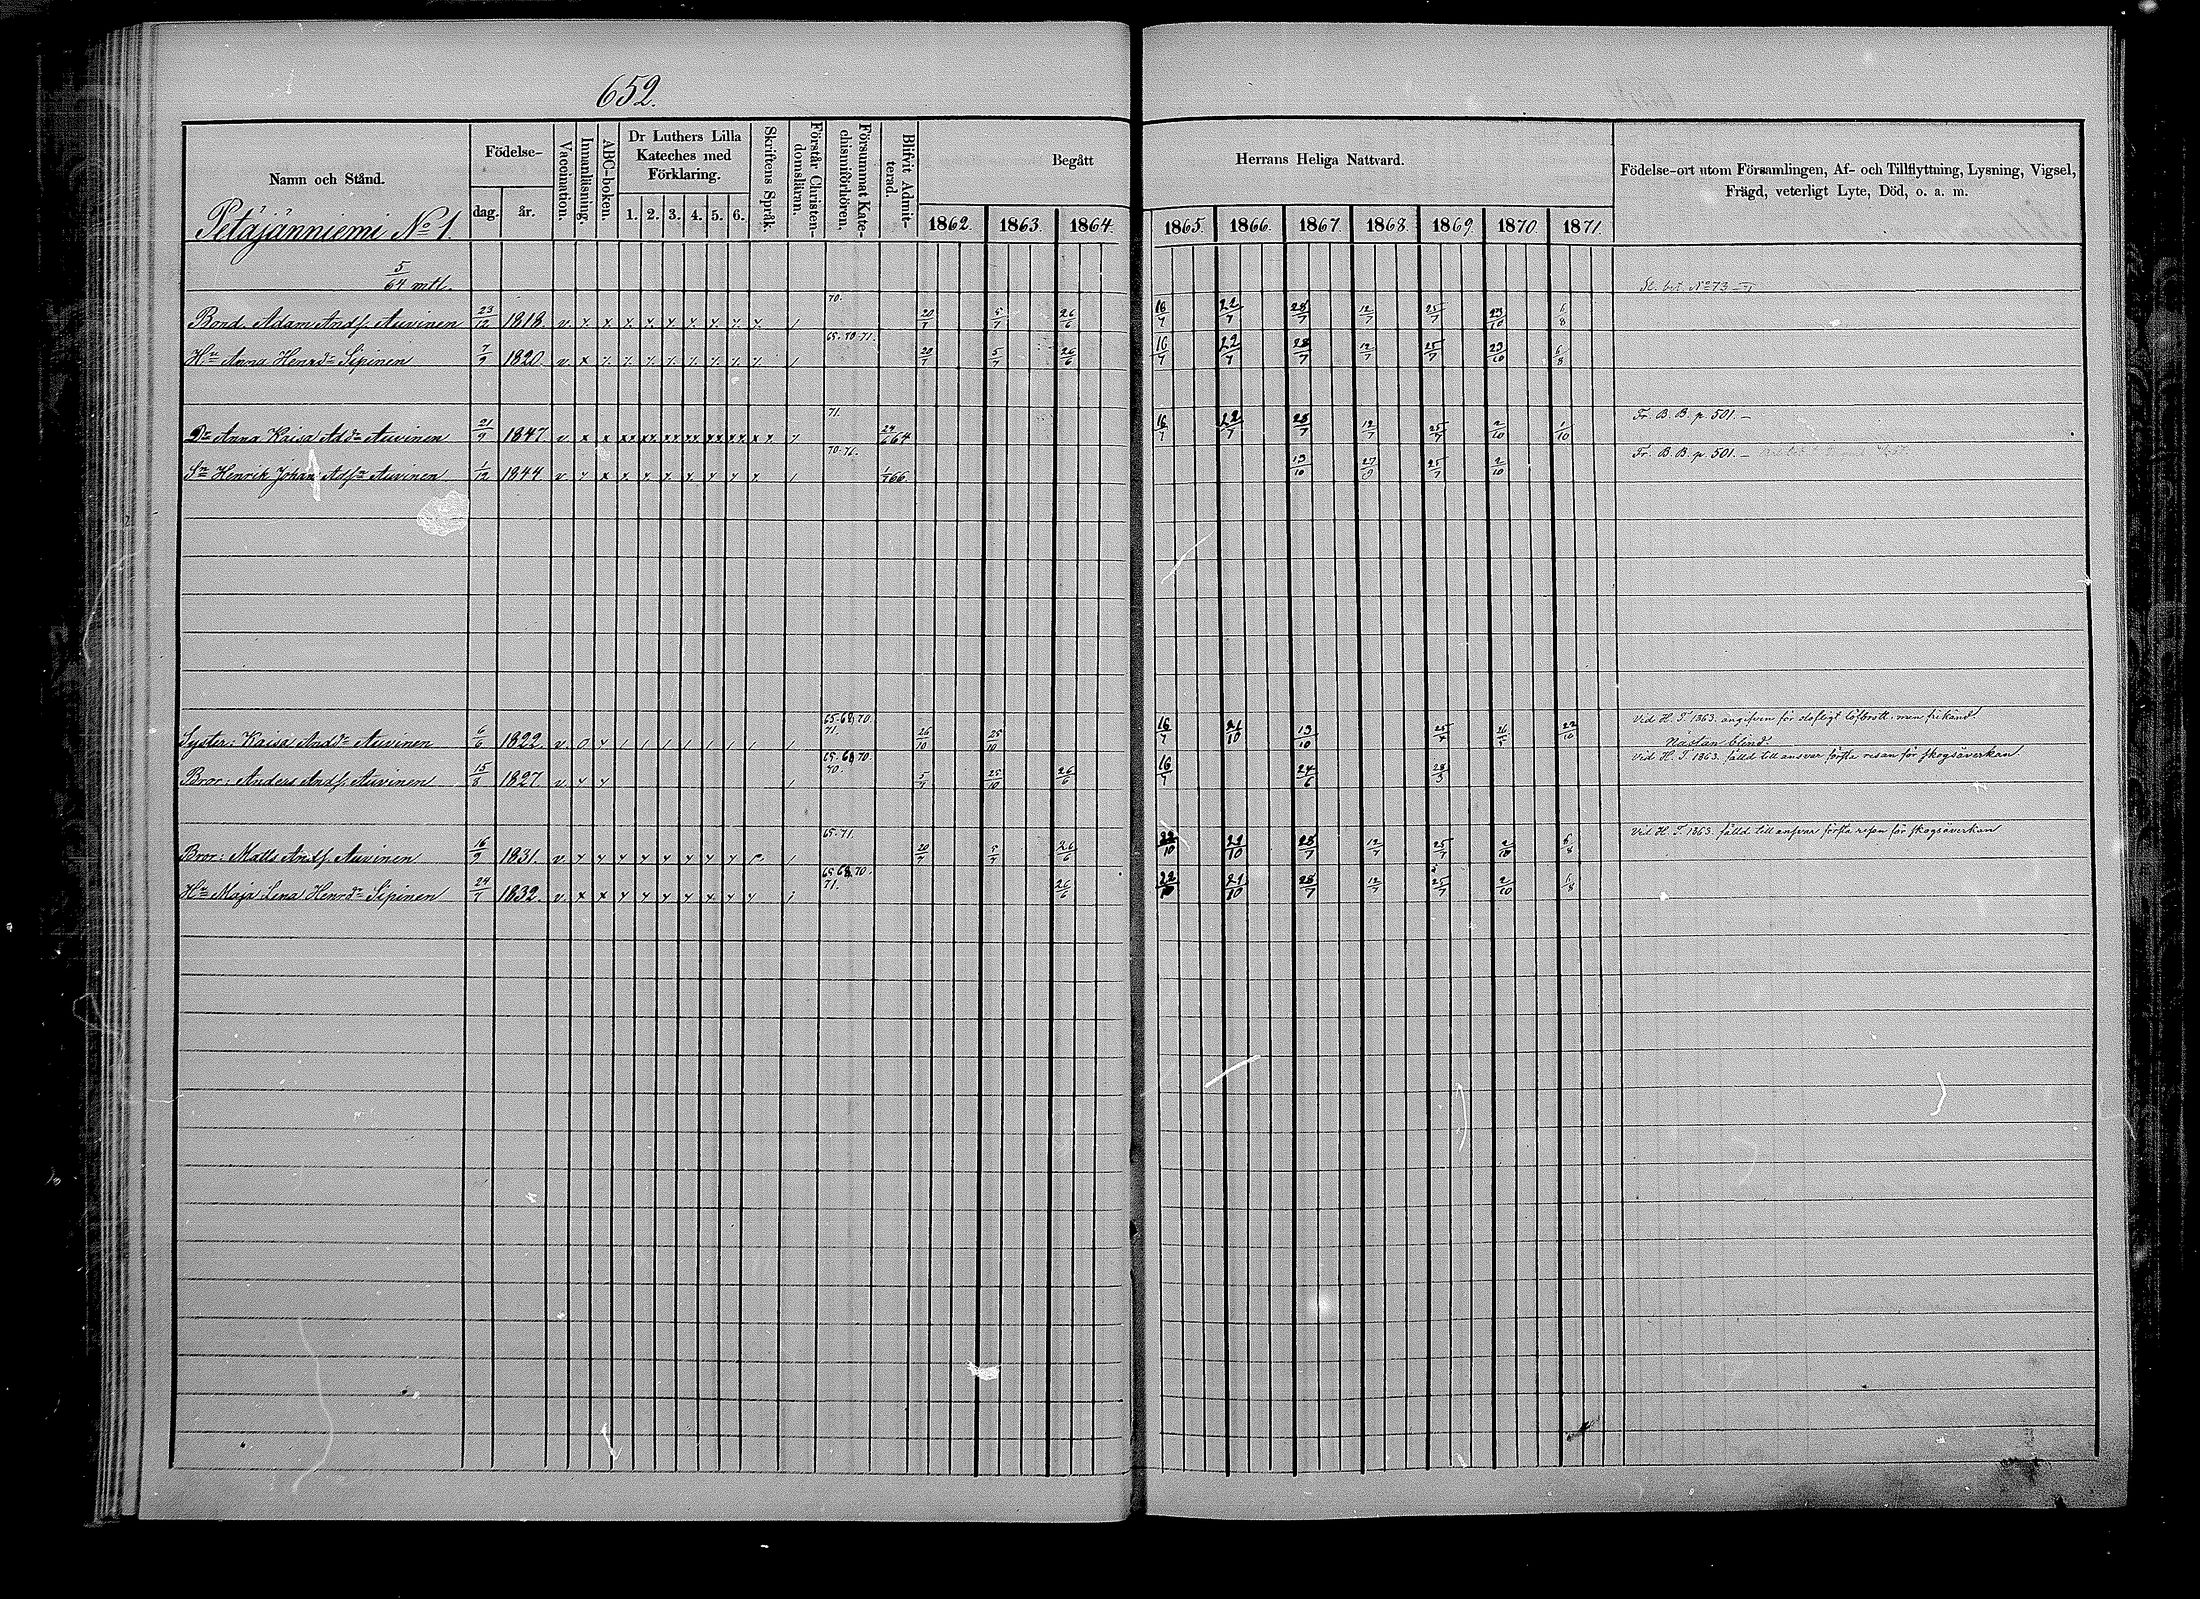 652.
Namn och Stånd. Födelse- dag. år. Vaccination. Innanläsning. ABC-boken. Dr Luthers Lilla Kateches med Förklaring. 1. 2. 3. 4. 5. 6. Skriftens Språk. Förstår Christendomsläran. Försummat Katechismiförhören. Blifvit Admitterad. Begått Herrans Heliga Nattvard. 1862. 1863. 1864. 1865. 1866. 1867. 1868. 1869. 1870. 1871. Födelse-ort utom Församlingen, Af- och Tillflyttning, Lysning, Vigsel, Frägd, veterligt Lyte, Död, o. a. m.
Petäjänniemi No 1.
5/64 mtl.
Bond. Adam Andſ. Auvinen 23/12 1818 v. 70. 20/7 5/7 26/6 16/7 22/7 28/7 12/7 25/7 23/10 6/8
Hu Anna Henrdr Sipinen 7/9 1820. v. 65.70.71. 20/7 5/7 26/6 16/7 22/7 28/7 12/7 25/7 23/10 6/8
Dr Anna Kaisa Addr Auvinen 21/9 1847 v. 71. 24/6 64 16/7 22/7 28/7 12/7 25/7 2/10 1/10 Fr. B. B. p. 501. —
Sn Henrik Johan Adſn Auvinen 1/12 1844 v. 1/7 66. 13/10 27/9 25/7 2/10 Fr. B. B. p. 501. —
Syster: Kaisa Anddr Auvinen 6/6 1822. v. 0 65.68.70. 71. 26/10 25/10 16/7 21/10 13/10 25/7 22/10 Vid H. T. 1863. angifven för men frikänd.
Nästan blind
Bror: Anders Andſ. Auvinen 15/8 1827. v. 65.68.70. 70. 5/7 25/10 26/6 16/7 24/6 Vid H. T. 1863. fälld till ansvar första resan för skogsåverkan
Bror: Matts Andſ. Auvinen 16/9 1831. v. 65.71. 20/7 5/7 26/6 22/10 21/10 28/7 12/7 25/7 2/10 6/8 Vid H. T. 1863. fälld till ansvar första resan för skogsåverkan
Hu Maja Lena Henrdr Sipinen 24/7 1832. v. 65.68.70. 71. 26/6 22/10 21/10 28/7 12/7 25/7 2/10 6/8